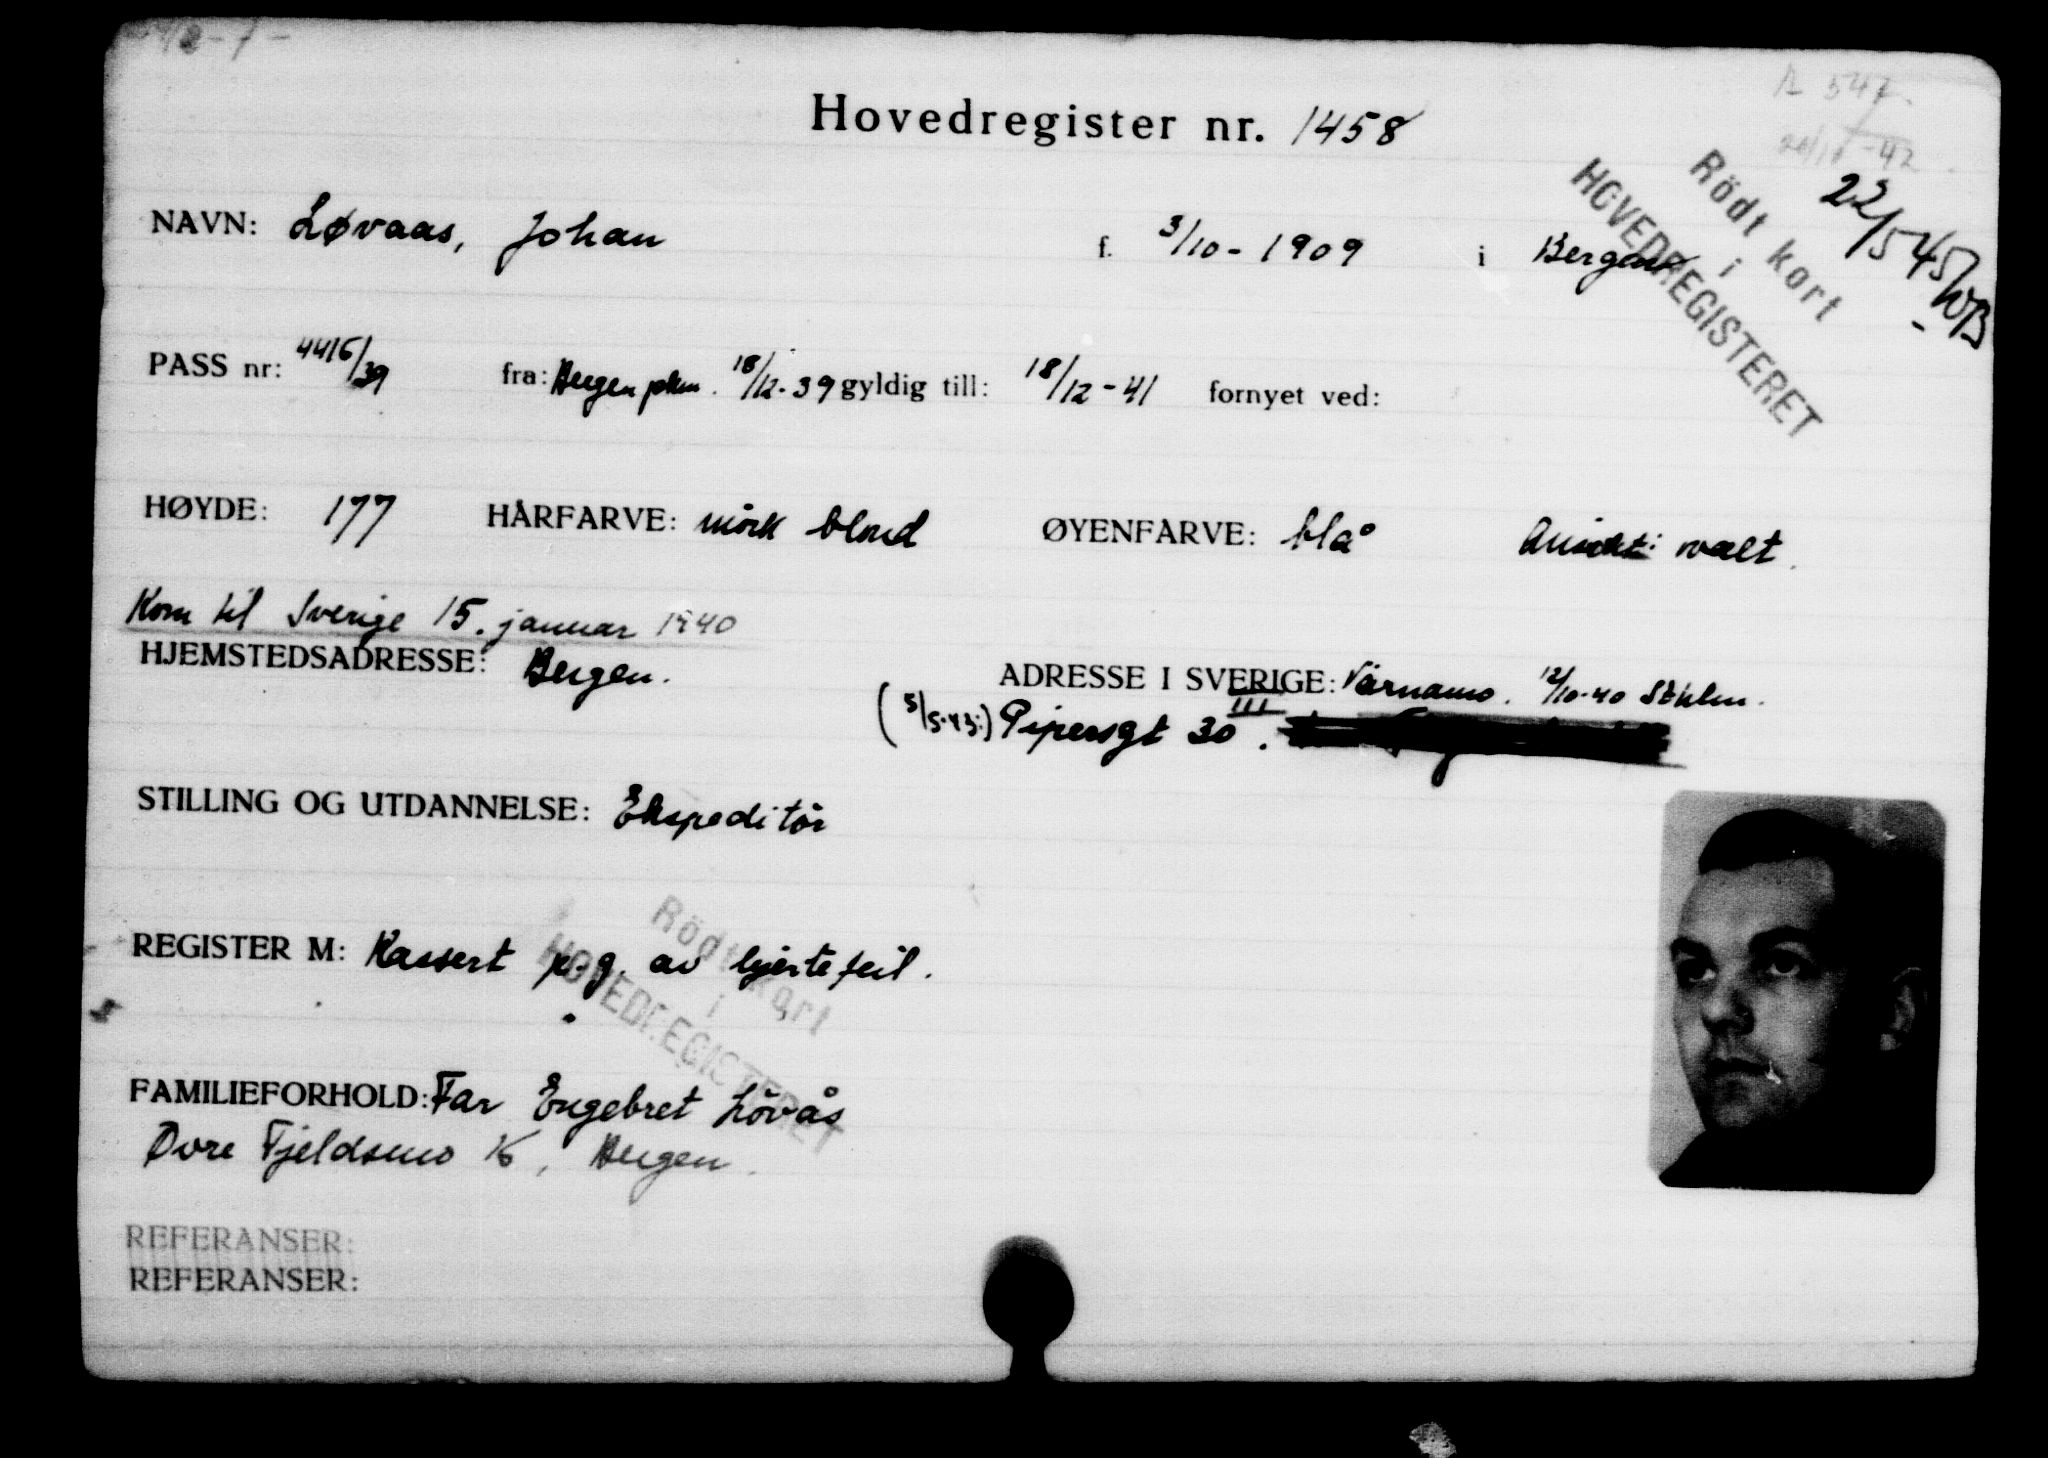 Hovedregister nr. 1458
R 547.
-42
22/5 45/WB
Rödt kort
i
HOVEDREGISTERET
NAVN: Løvaas, Johan f. 3/10 - 1909 i Bergen
PASS nr: 4416/39 fra: Bergen pkm. 18/12-39 gyldig till: 18/12-41 fornyet ved:
HØYDE: 177 HÅRFARVE: mörk blond ØYENFARVE: blå Ansikt: ovalt.
Kom til Sverige 15. januar 1940
HJEMSTEDSADRESSE: Bergen. ADRESSE I SVERIGE: Värnamo. 12/10-40 Sthlm.
(5/5-43:) Pipersgt 30 III.
STILLING OG UTDANNELSE: Ekspeditör
Rödt kort
i
HOVEDREGISTERET
REGISTER M: Kassert p.g. av hjertefeil.
FAMILIEFORHOLD: Far Engebret Lövås
Øvre Fjeldsmo 16, Bergen.
REFERANSER:
REFERANSER: